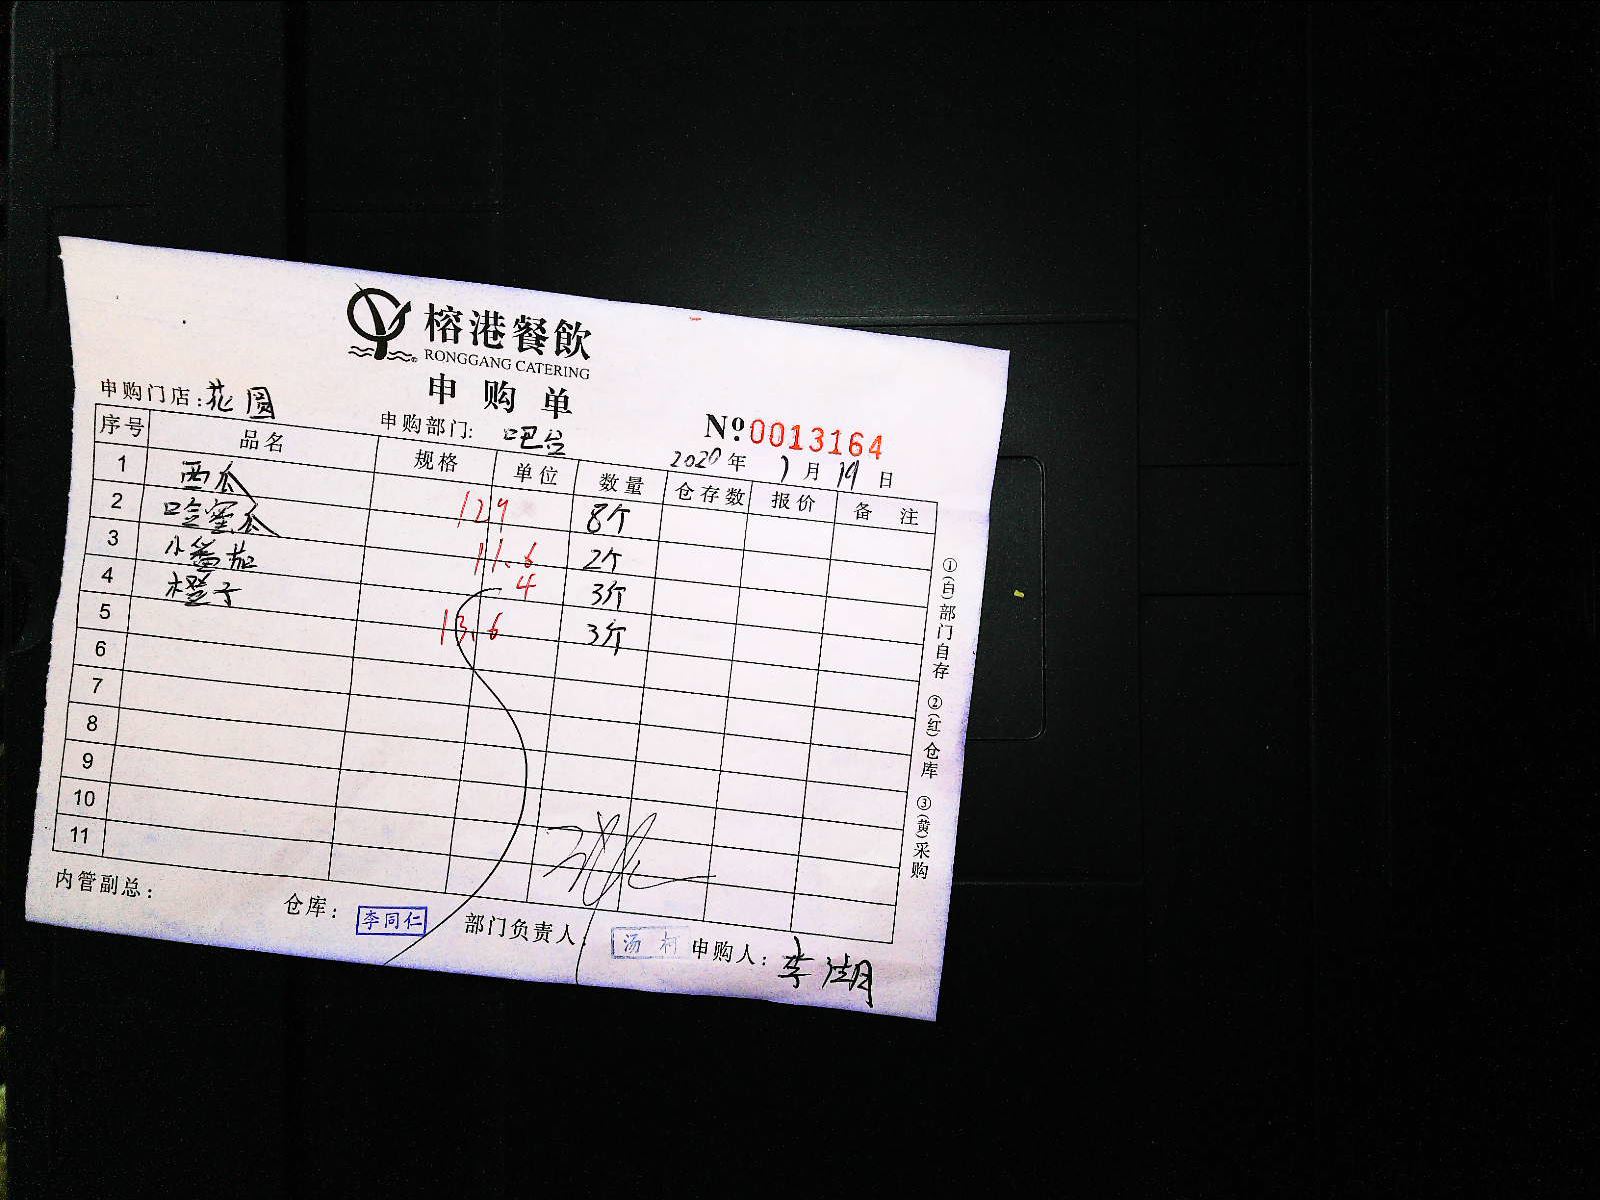 榕港餐飲
RONGGANG CATERING
申购单
申购门店:花圆 申购部门: 吧台 Nº 0013164
2020年 1月 19日
序号 品名 规格 单位 数量 仓存数 报价 备注
1 西瓜 129 8个
2 哈蜜瓜 11.6 2个
3 小番茄 4 3斤
4 橙子 13.6 3斤
5
6
7
8
9
10
11
①(白)部门自存 ②(红)仓库 ③(黄)采购
内管副总: 仓库: 李同仁 部门负责人: 汤 申购人: 李湖